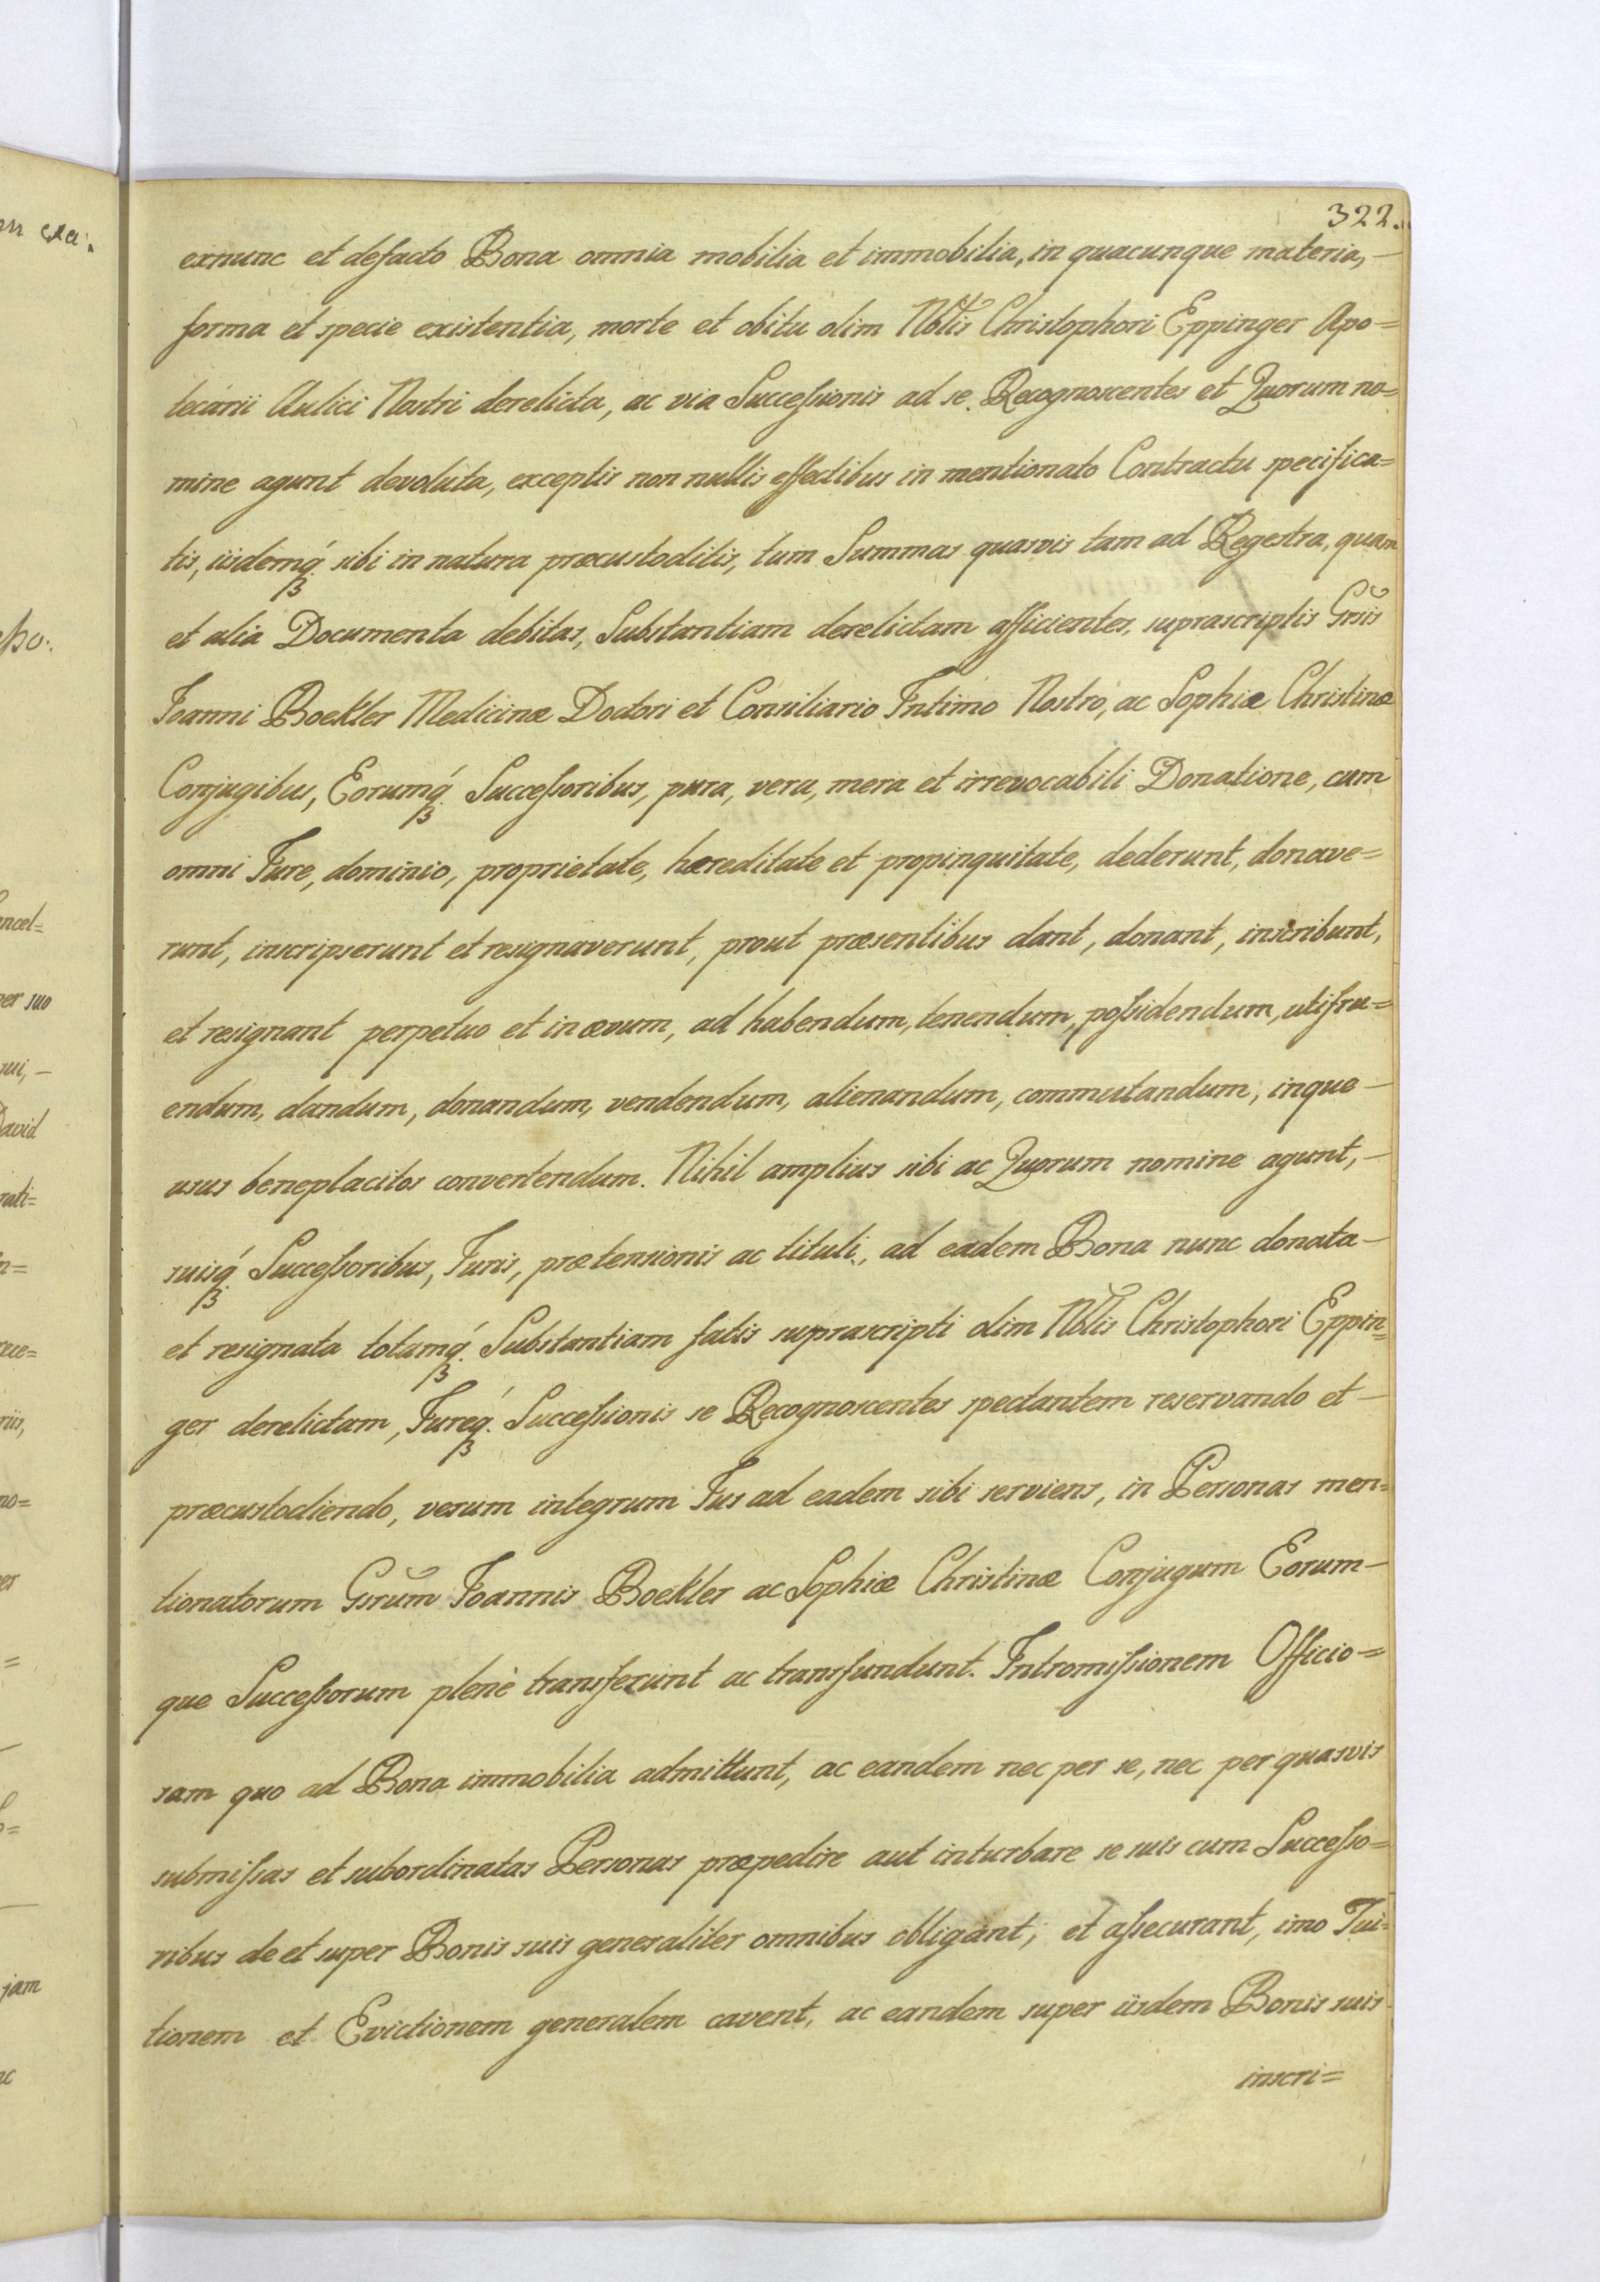 322.
exnunc et defacto Bona omnia mobilia et immobilia, in quacunque materia, –
forma et specie existentia, morte et obitu olim Nblis Christophori Eppinger Apo=
tecarii Aulici Nostri derelicta, ac via Succeſsionis ad se Recognoscentes et Quorum no=
mine agunt devoluta, exceptis non nullis effectibus in mentionato Contractu specifica=
tis, iisdemq́. sibi in natura præcustoditis, tum Summas quasvis tam ad Regestra, quam
et alia Documenta debitas, Substantiam derelictam afficientes, suprascriptis Grsis
Joanni Boekler Medicinæ Doctori et Consiliario Intimo Nostro, ac Sophiæ Christinæ
Conjugibus, Eorumq́. Succeſsoribus, pura, vera, mera et irrevocabili Donatione, cum
omni Jure, dominio, proprietate, hæreditate et propinquitate, dederunt, donave=
runt, inscripserunt et resignaverunt, prout præsentibus dant, donant, inscribunt,
et resignant perpetuo et in ævum, ad habendum, tenendum, poſsidendum, utifru=
endum, dandum, donandum, vendendum, alienandum, commutandum, inque –
usus beneplacitos convertendum. Nihil amplius sibi ac Quorum nomine agunt, –
suisq́. Succeſsoribus, Juris, prætensionis ac tituli, ad eadem Bona nunc donata –
et resignata totamq́. Substantiam fatis suprascripti olim Nblis Christophori Eppin=
ger derelictam, Jureq́. Succeſsionis se Recognoscentes spectantem reservando et –
præcustodiendo, verum integrum Jus ad eadem sibi serviens, in Personas men=
tionatorum Gsrum Joannis Boekler ac Sophiæ Christinæ Conjugum Eorum –
que Succeſsorum plenè transferunt ac transfundunt. Intromiſsionem Officio=
sam quo ad Bona immobilia admittunt, ac eandem nec per se, nec per quasvis
submiſsas et subordinatas Personas præpedire aut inturbare se suis cum Succeſso=
ribus de et super Bonis suis generaliter omnibus obligant, et aſsecurant, imo Tui=
tionem et Evictionem generalem cavent, ac eandem super iisdem Bonis suis
inscri=